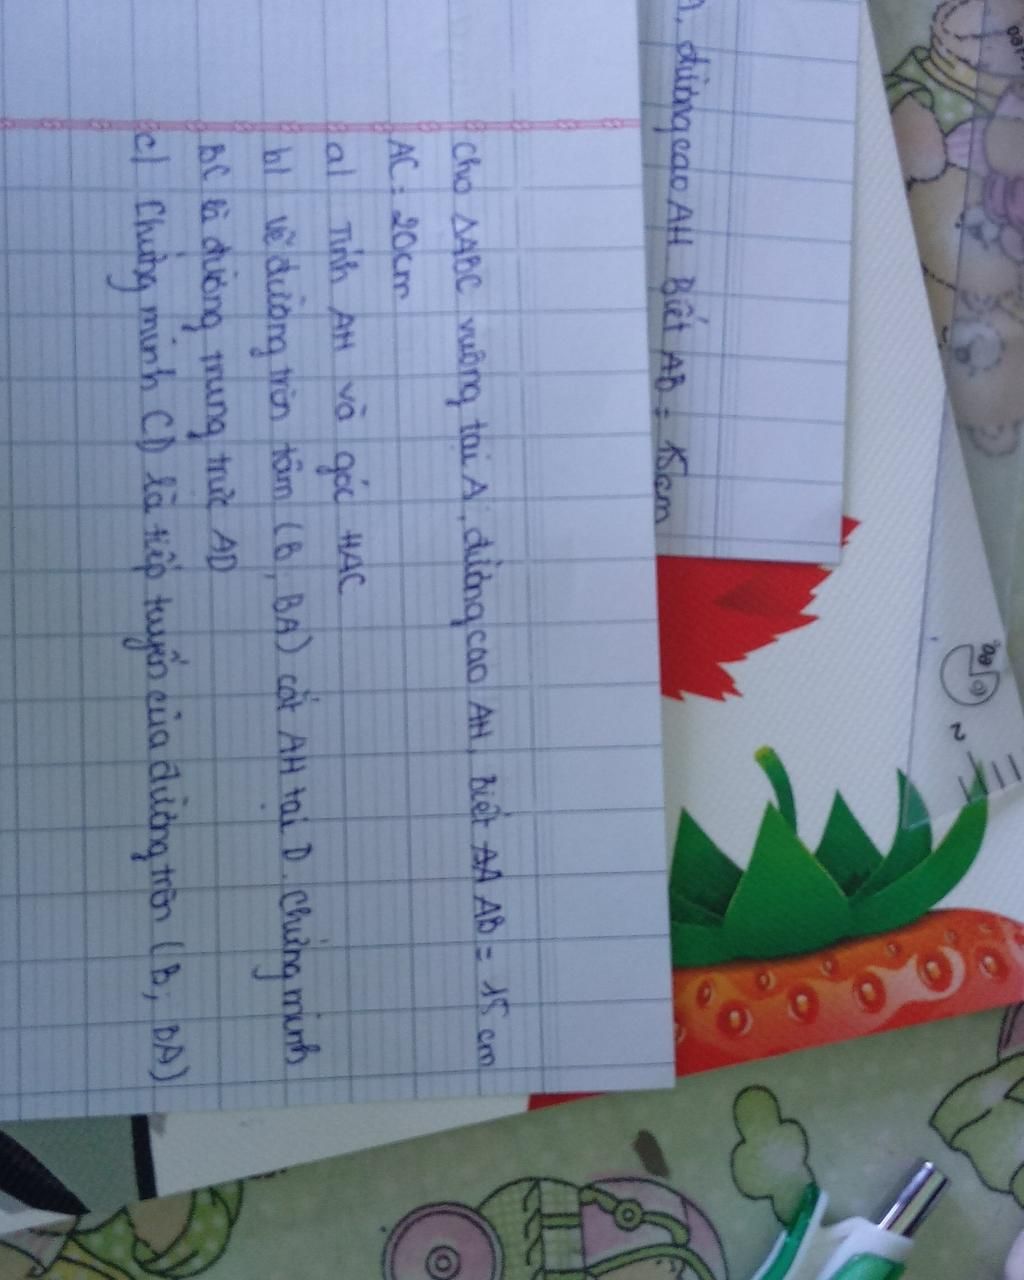 , đường cao AH Biết AB = 15cm
Cho ΔABC vuông tại A, đường cao AH, biết AA AB = 15 cm
AC = 20cm
a) Tính AH và góc HAC
b) Vẽ đường tròn tâm (B, BA) cắt AH tại D. Chứng minh
BC là đường trung trực AD
c) Chứng minh CD là tiếp tuyến của đường tròn (B; BA)
2